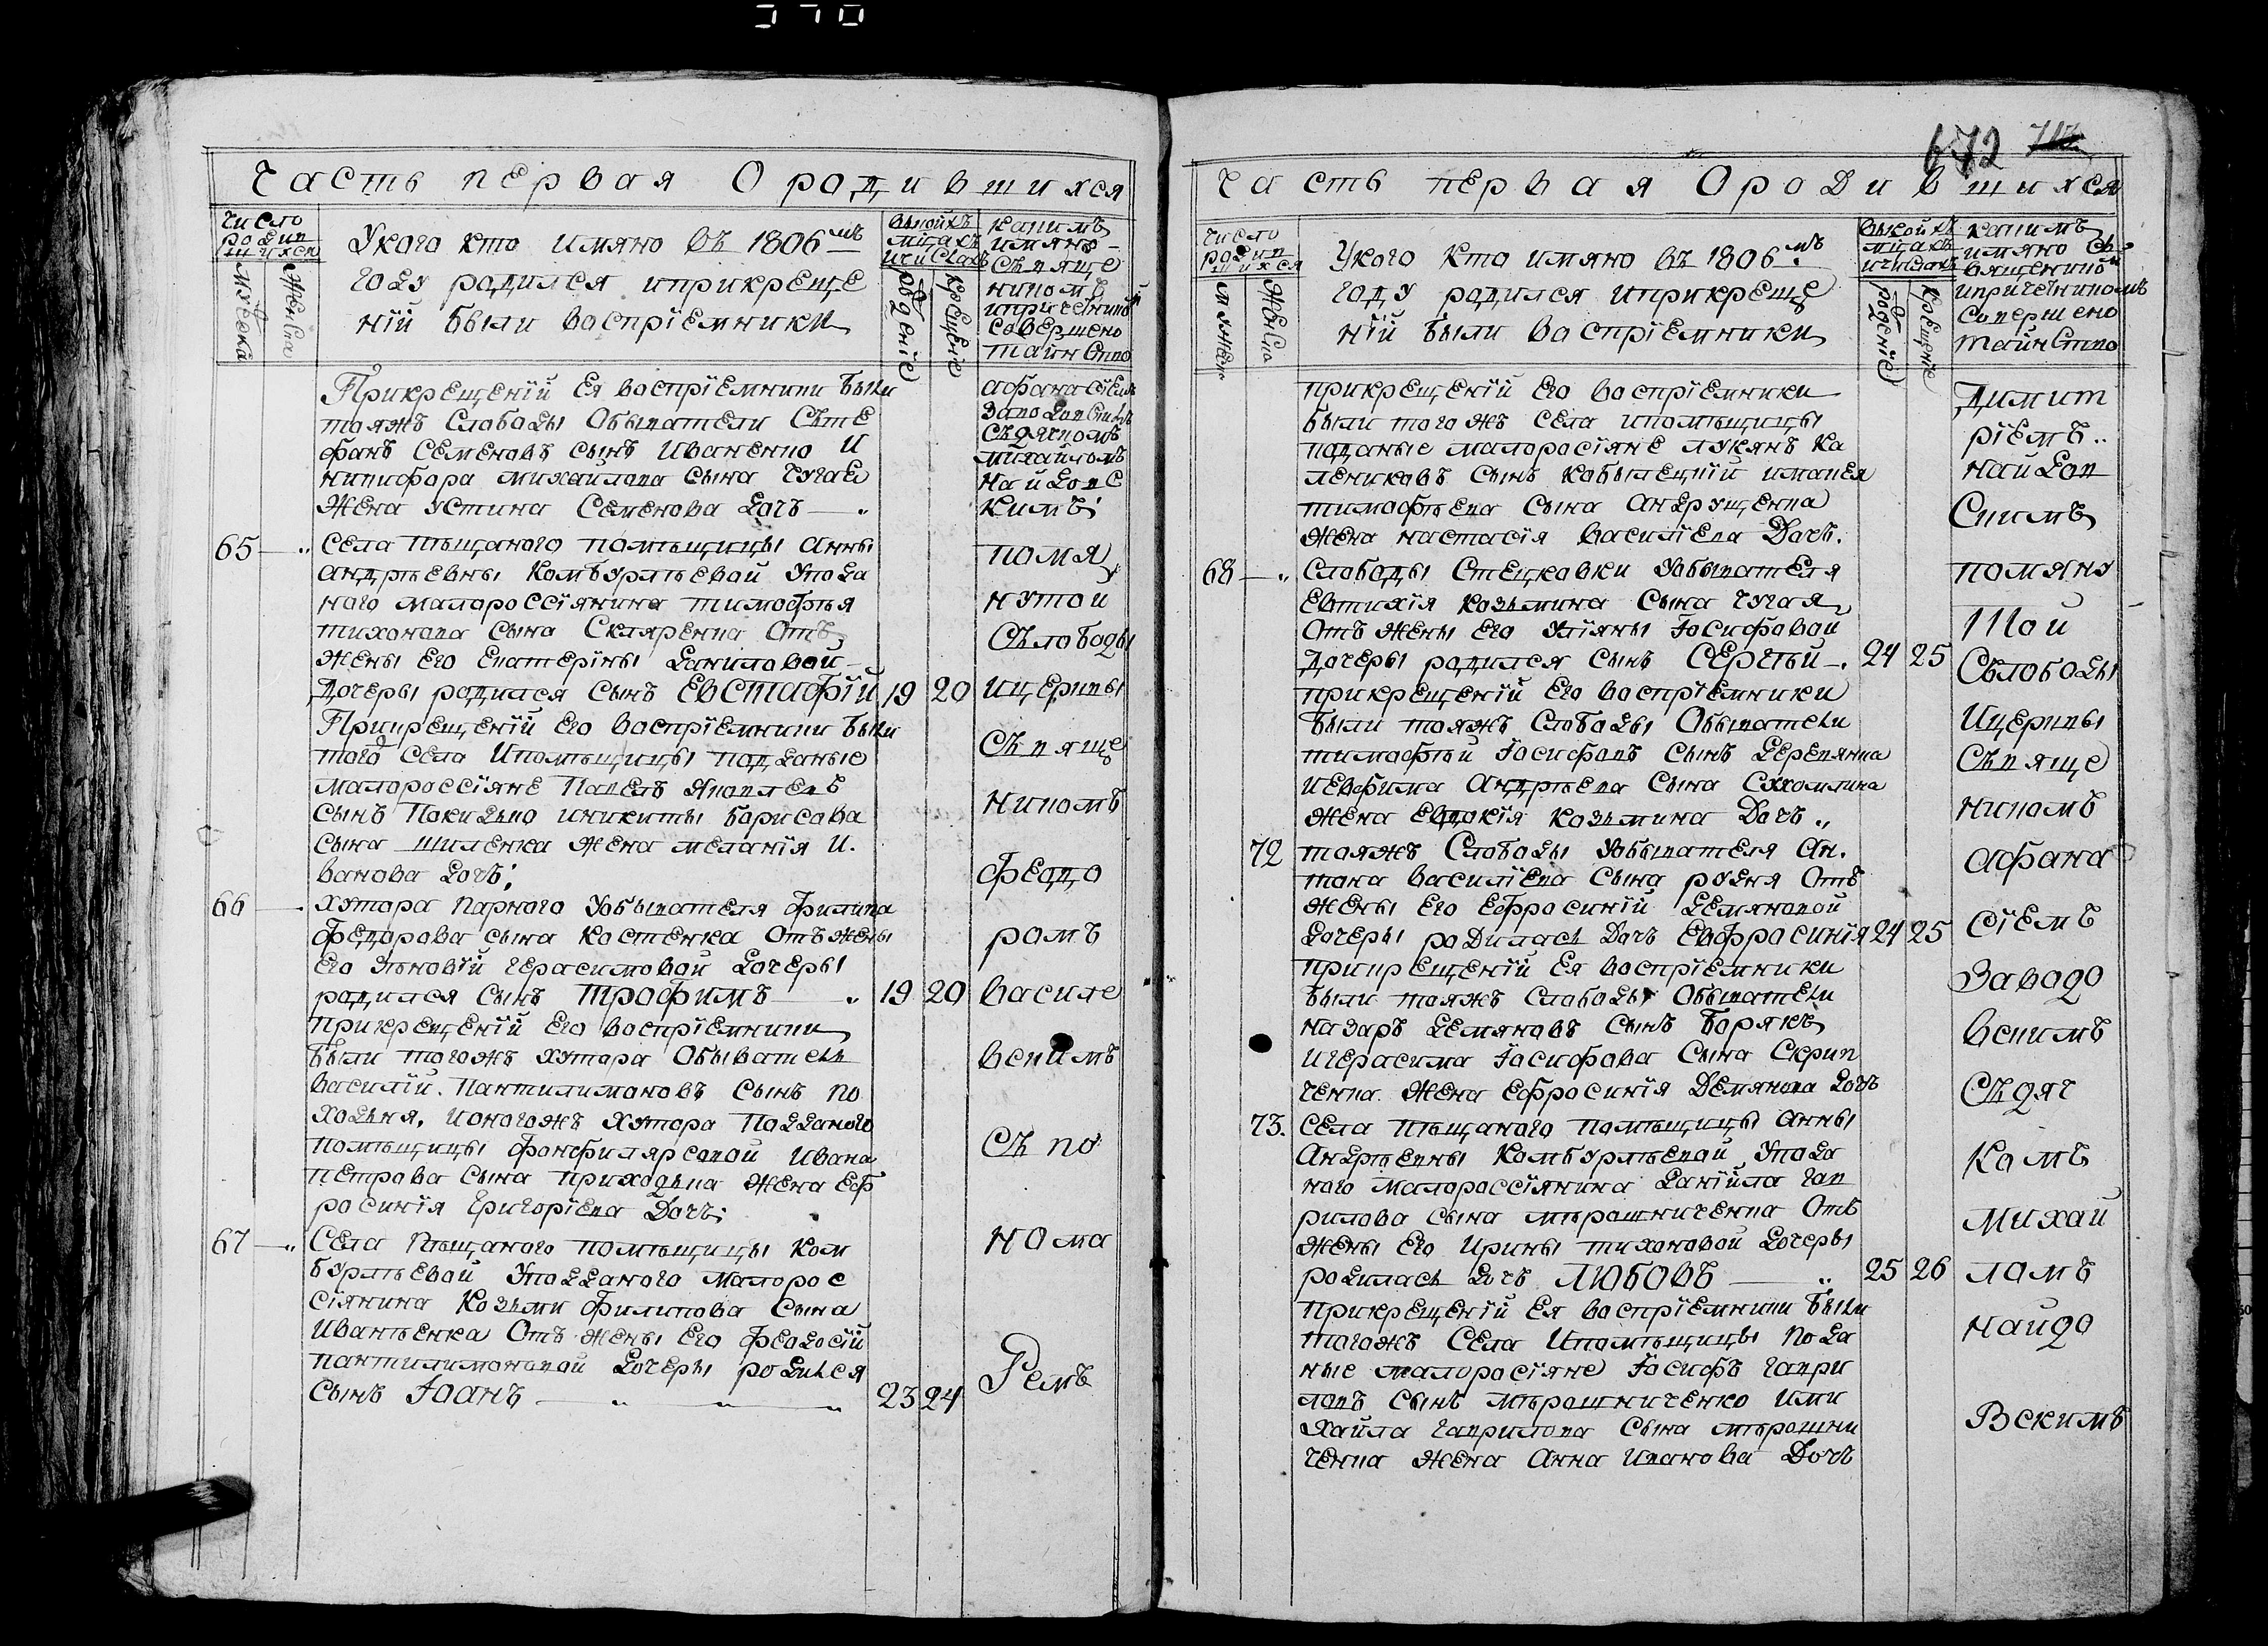 370
Часть первая О родившихся
число
родив
шихся
мужеска
женска
У кого кто имяно въ 1806мъ
году родился и при креще
нїй были воспрїемники
въ коихъ
мѣсяцахъ
и числахъ
рождение
крещение
какимъ
имяно
священ
никомъ
и причетникомъ
совершено
таинство
При крещенїй Ея воспрїемники были
тояжъ Слабоды Обыватели Сте
фанъ Семеновъ сынъ Иваненко И
Никифора Михайлова сына Чугая
Жена Устина Семенова дочь
афанасїемъ
Заводовскимъ
съ дячкомъ
михайломъ
найдовс
кимъ
65
Села пѣщаного помѣщицы Анны
Андрѣевны Комбурлѣевой У пода
ного малороссїянина тимофѣя
тихонова сына Скляренка Отъ
Жены Его Екатерины Даниловой
Дочеры родился сынъ Евстафїй 19 20
При крещенїй Его воспрїемники были
тогожъ Села И помѣщицы подданые
малороссїяне Павелъ Яковлевъ
сынъ Покидько и никиты Борисова
сына шиленка Жена меланїя И
ванова дочь
помя
нутой
Слободы
и церкви
священ
никомъ
66
Хутора Парного У обывателя Филипа
Федорова сына Костенка Отъ Жены
Его Зѣновїй Герасимовой Дочеры
родился сынъ Трофимъ 19 20
При крещенїй Его воспрїемники
были тогожъ хутора Обыватели
василїй Пантилимоновъ сынъ По
ходня, и оногожъ Хутора Подданого
помѣщицы Фонфилярсовой Ивана
Петрова сына Приходька Жена Еф
росинїя Григорїева Дочь
федо
ромъ
василе
вскимъ
съ по
67
Села Пѣщаного помѣщицы Ком
бурлѣевой У подданого малорос
сїянина Козьми Филипова Сына
Иванѣенка Отъ жены Его Феодосїй
пантилимоновой Дочеры родился
сынъ Їоанъ 23 24
нома
ремъ
672
Часть первая О родившихся
число
родив
шихся
мужеска
женска
У кого кто имяно въ 1806мъ
году родился и при креще
нїй были воспрїемники
въ коихъ
мѣсяцахъ
и числахъ
рождение
крещение
какимъ
имяно св
ященникомъ
и причетникомъ
совершено
таинство
при крещенїй Его воспрїемники
были того жъ Села и помѣщицы
поданые малоросїяне Лукянъ Ка
лениковъ сынъ Кобылецкїй и матвея
тимофѣева Сына Андрущенка
Жена настасїя василїева Дочь
димит
рїемъ
найдов
скимъ
68
Слабоды Стецковки У обывателя
Евтихїя Козьмина Сына Чугая
Отъ Жены Его Улїяны Їосифовой
Дочеры родился сынъ Сергѣй 24 25
при крещенїй Его воспрїемники
были тояжъ Слабоды Обыватели
тимофѣй Їосифовъ сынъ Деревянка
и Евфима Андрѣева Сына Сухомлина
Жена Евдокїя Козьмина Дочь
помяну
той
Слободы
И церкви
священ
никомъ
72
тояжъ Слабоды У обывателя Ан
тона василїева Сына рудня Отъ
Жены Его Ефросинїй Демяновой
Дочеры родилась Дочь Евфросинїя 24 25
при крещенїй Ея воспрїемники
были тояжъ Слабоды Обыватели
назаръ Демяновъ сынъ Борякъ
и герасима Їосифова Сына Скрип
ченка Жена Ефросинїя Демянова Дочь
афана
сїемъ
Заводо
вскимъ
съ дяч
комъ
73.
Села пѣщаного помѣщицы Анны
Андрѣевны Комбурлѣевой У пода
ного Малороссїянина Данїила Гав
рилова сына мѣрошниченка Отъ
жены Его Ирины тихоновой Дочеры
родилась дочь Любовъ 25 26
при крещенїй Ея воспрїемники были
тогожъ Села И помѣщицы пода
ные малоросїяне Їосифъ Гаври
ловъ сынъ мѣрошниченко и ми
хайла Гаврилова Сына мѣрошни
ченка Жена Анна Иванова Дочь
михай
ломъ
найдо
вскимъ